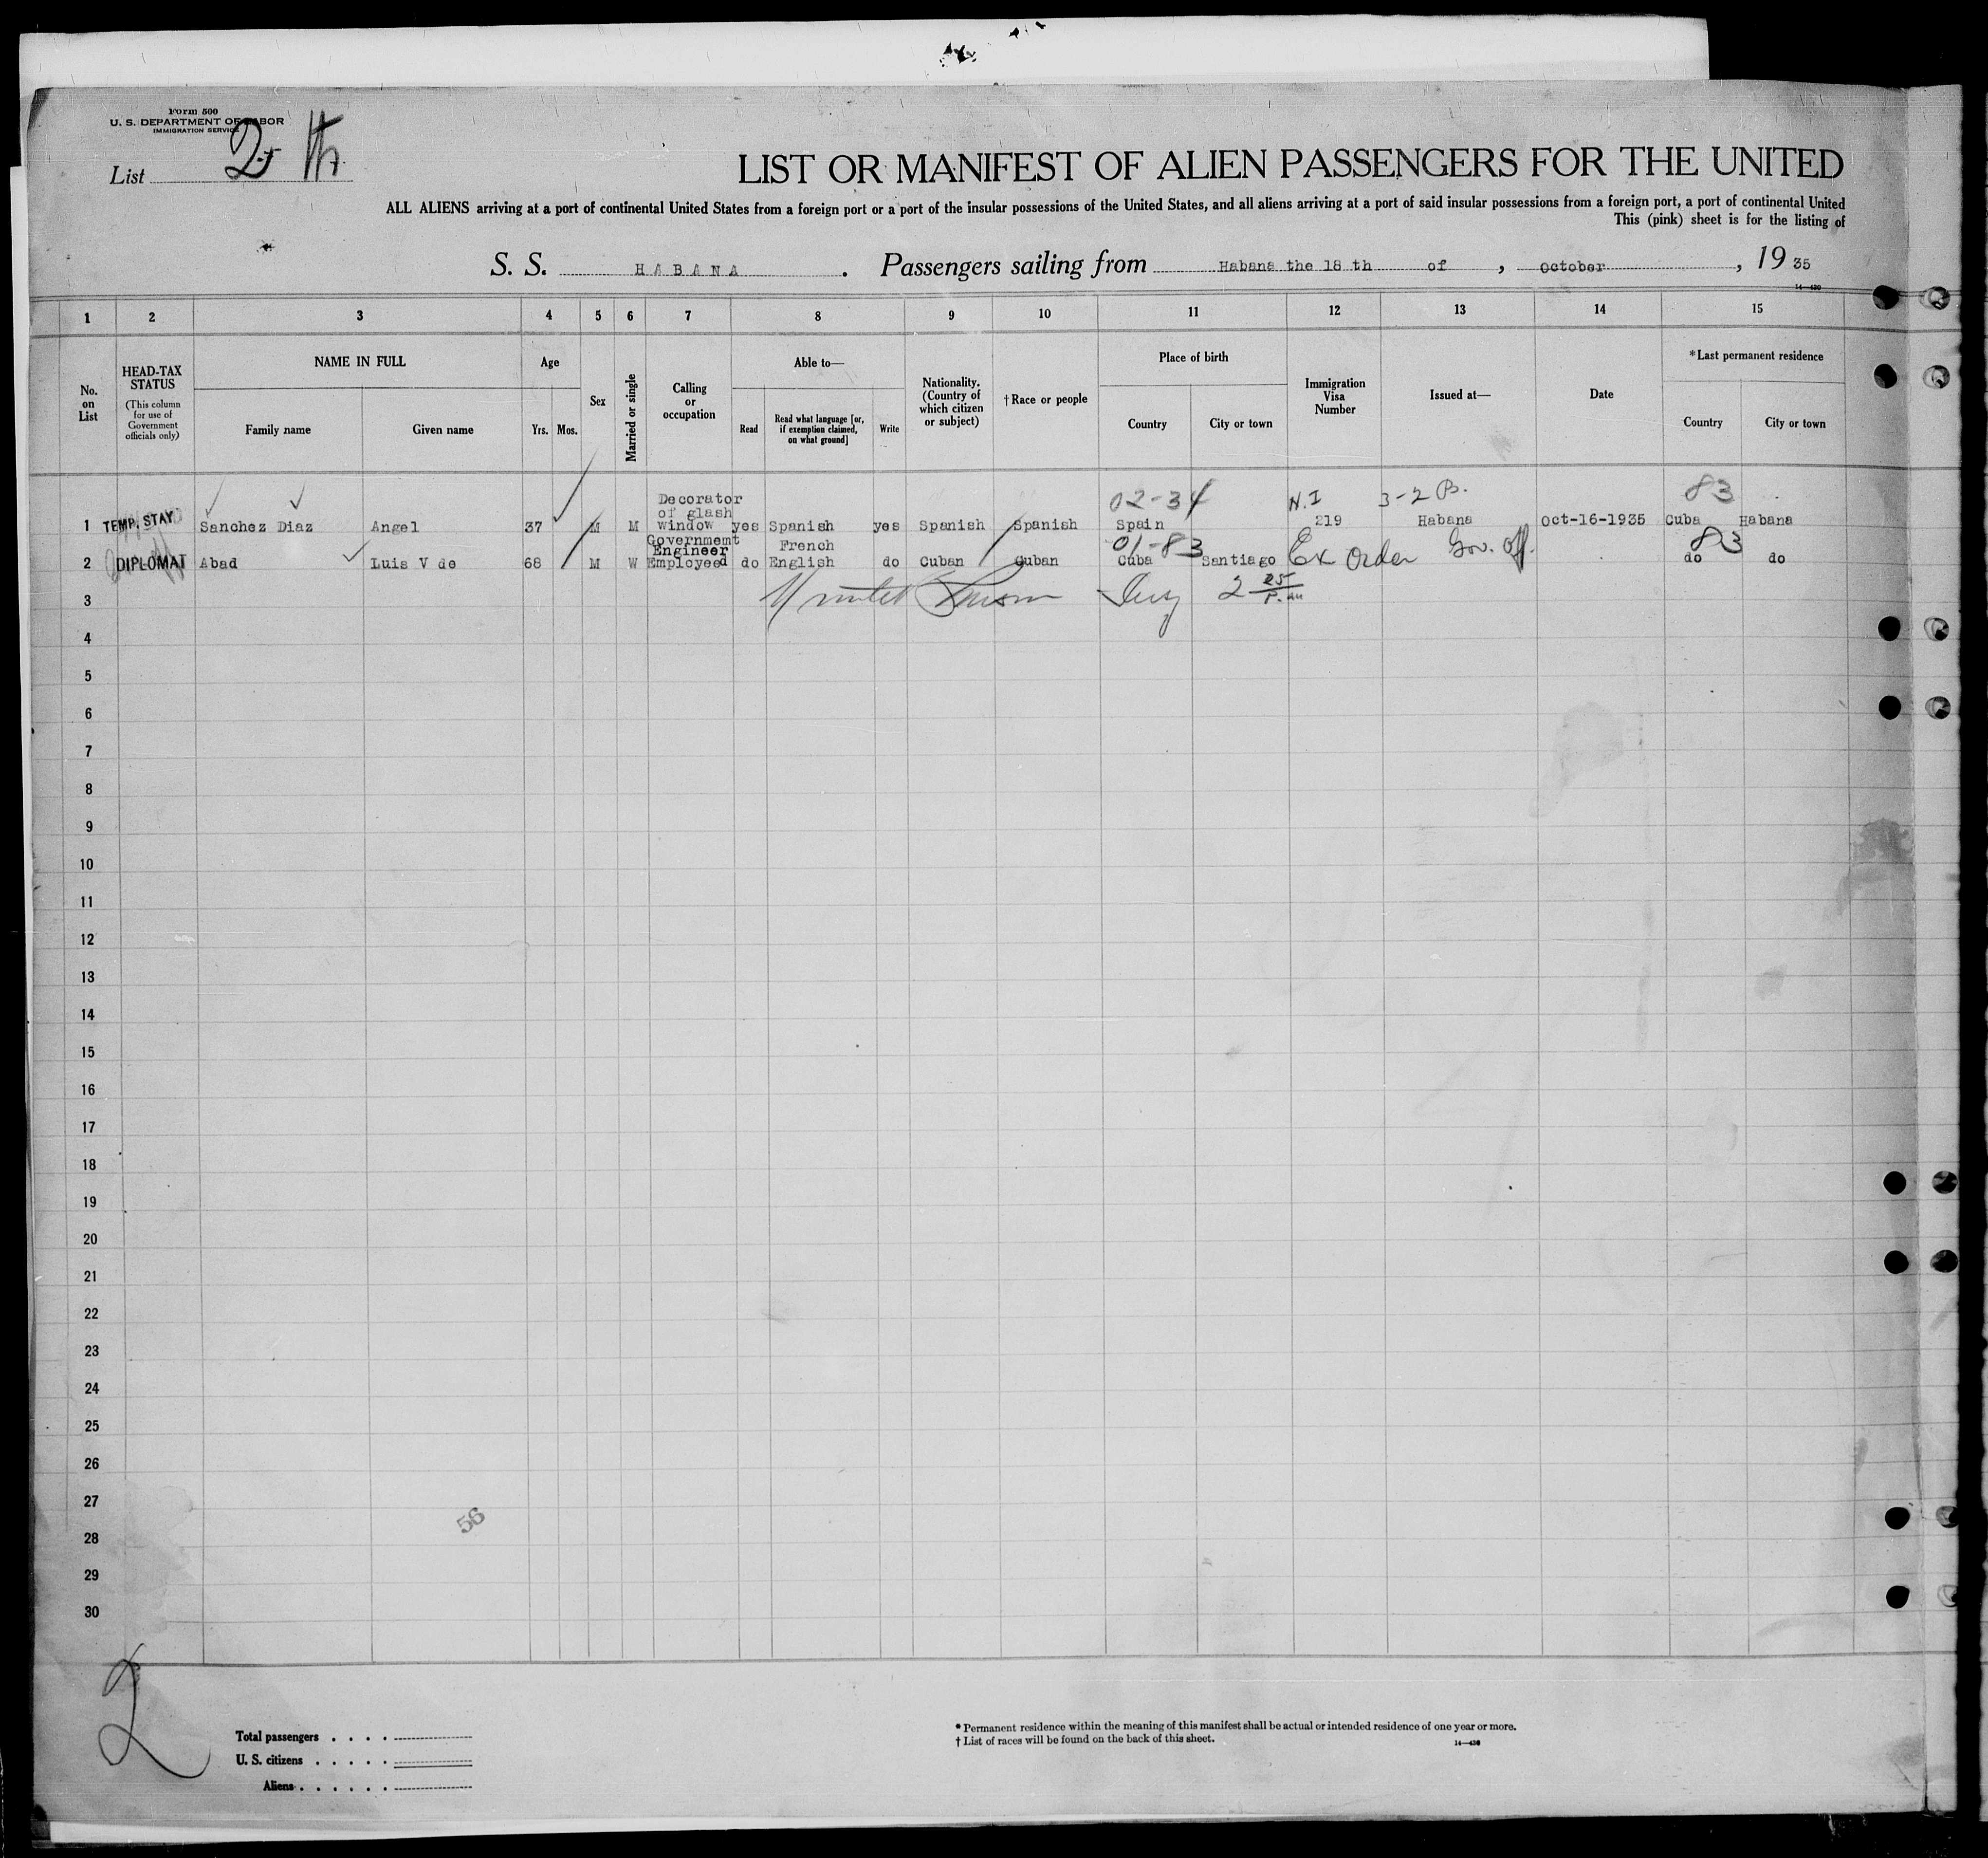 Form 500
U. S. DEPARTMENT OF LABOR
IMMIGRATION SERVICE
List 2
LIST OR MANIFEST OF ALIEN PASSENGERS FOR THE UNITED
ALL ALIENS arriving at a port of continental United States from a foreign port or a port of the insular possessions of the United States, and all aliens arriving at a port of said insular possessions from a foreign port, a port of continental United
This (pink) sheet is for the listing of
S. S. HABANA. Passengers sailing from Habana the 18 th of, October, 19 35
14—430
1 2 3 4 5 6 7 8 9 10 11 12 13 14 15
No. on List
HEAD-TAX STATUS
(This column for use of Government officials only)
NAME IN FULL
Family name Given name
Age
Yrs. Mos.
Sex
Married or single
Calling or occupation
Able to—
Read
Read what language [or, if exemption claimed, on what ground]
Write
Nationality. (Country of which citizen or subject)
† Race or people
Place of birth
Country City or town
Immigration Visa Number
Issued at—
Date
*Last permanent residence
Country City or town
02-34 N.I 3-2 B. 83
1 TEMP. STAY Sanchez Diaz Angel 37 M M Decorator of glash window yes Spanish yes Spanish Spanish Spain 219 Habana Oct-16-1935 Cuba Habana
01-83 83
2 DIPLOMAT Abad Luis V de 68 M W Government Engineer Employeed do French English do Cuban Cuban Cuba Santiago Ex Order Gov. Off. do do
3 2 25 P.m
4
5
6
7
8
9
10
11
12
13
14
15
16
17
18
19
20
21
22
23
24
25
26
27
56
28
29
30
2
Total passengers . . . .
U. S. citizens . . . . .
Aliens . . . . . .
* Permanent residence within the meaning of this manifest shall be actual or intended residence of one year or more.
† List of races will be found on the back of this sheet.
14—430